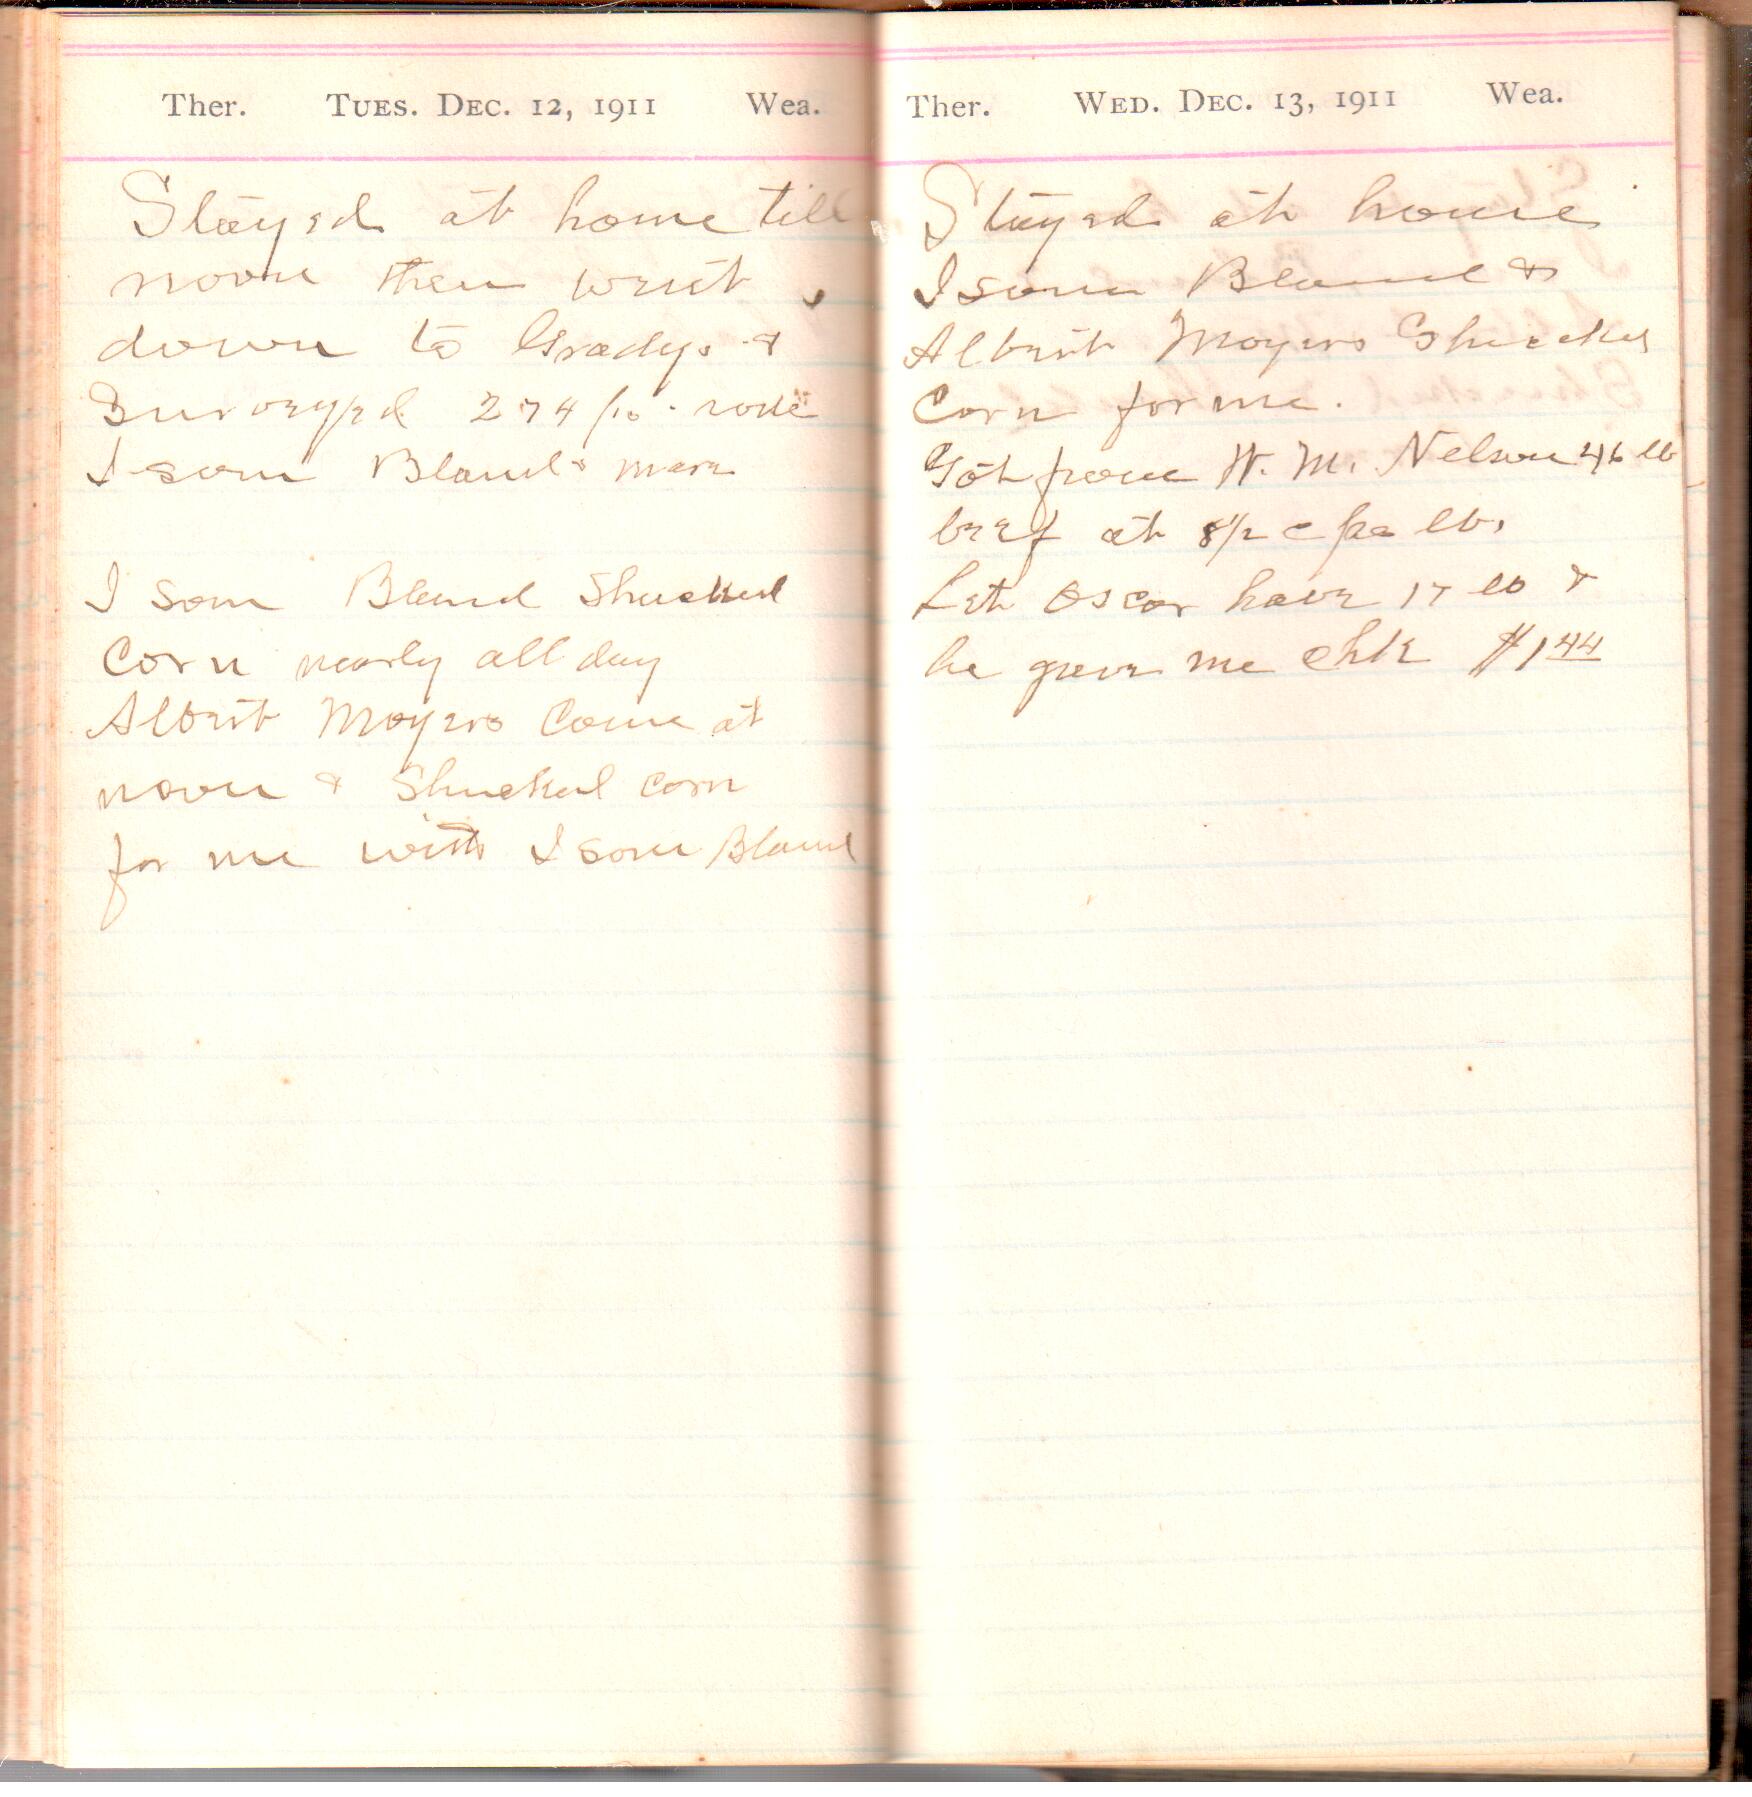 Ther. Tues. Dec. 12, 1911 Wea.
Stayed at home till
noon then went
down to Gradys &
Surveyed 274/10 rode
Isom Bland &
Isom Bland Shucked
Corn nearly all day
Albert Moyers Come at
noon & Shucked corn
for me with Isom Bland
Ther. Wed. Dec. 13, 1911 Wea.
Stayed at home
Isom Bland &
Albert Moyers Shucked
Corn for me.
Got from W. M. Nelson 46 lb
beef at 8 1/2 c per lb,
Let Oscar have 17 lb &
he gave me chk $1 44